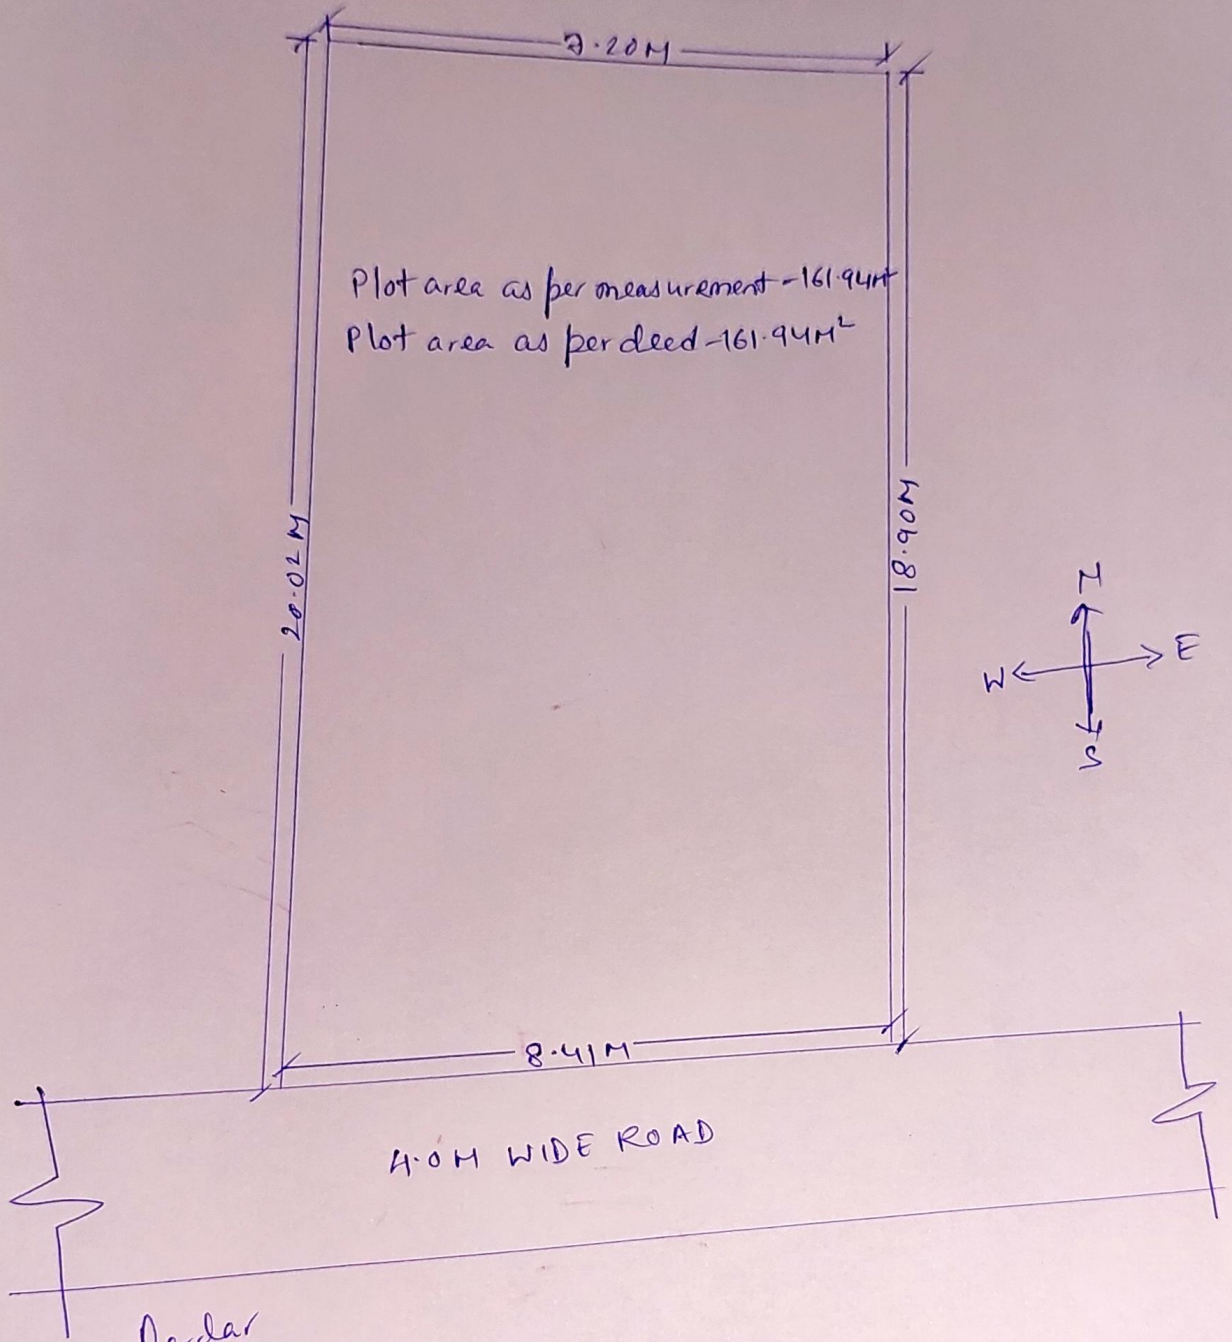 7.20M
Plot area as per measurement - 161.94M²
Plot area as per deed - 161.94M²
20.02 M
18.90M
N
W
E
S
8.41M
4.0M WIDE ROAD